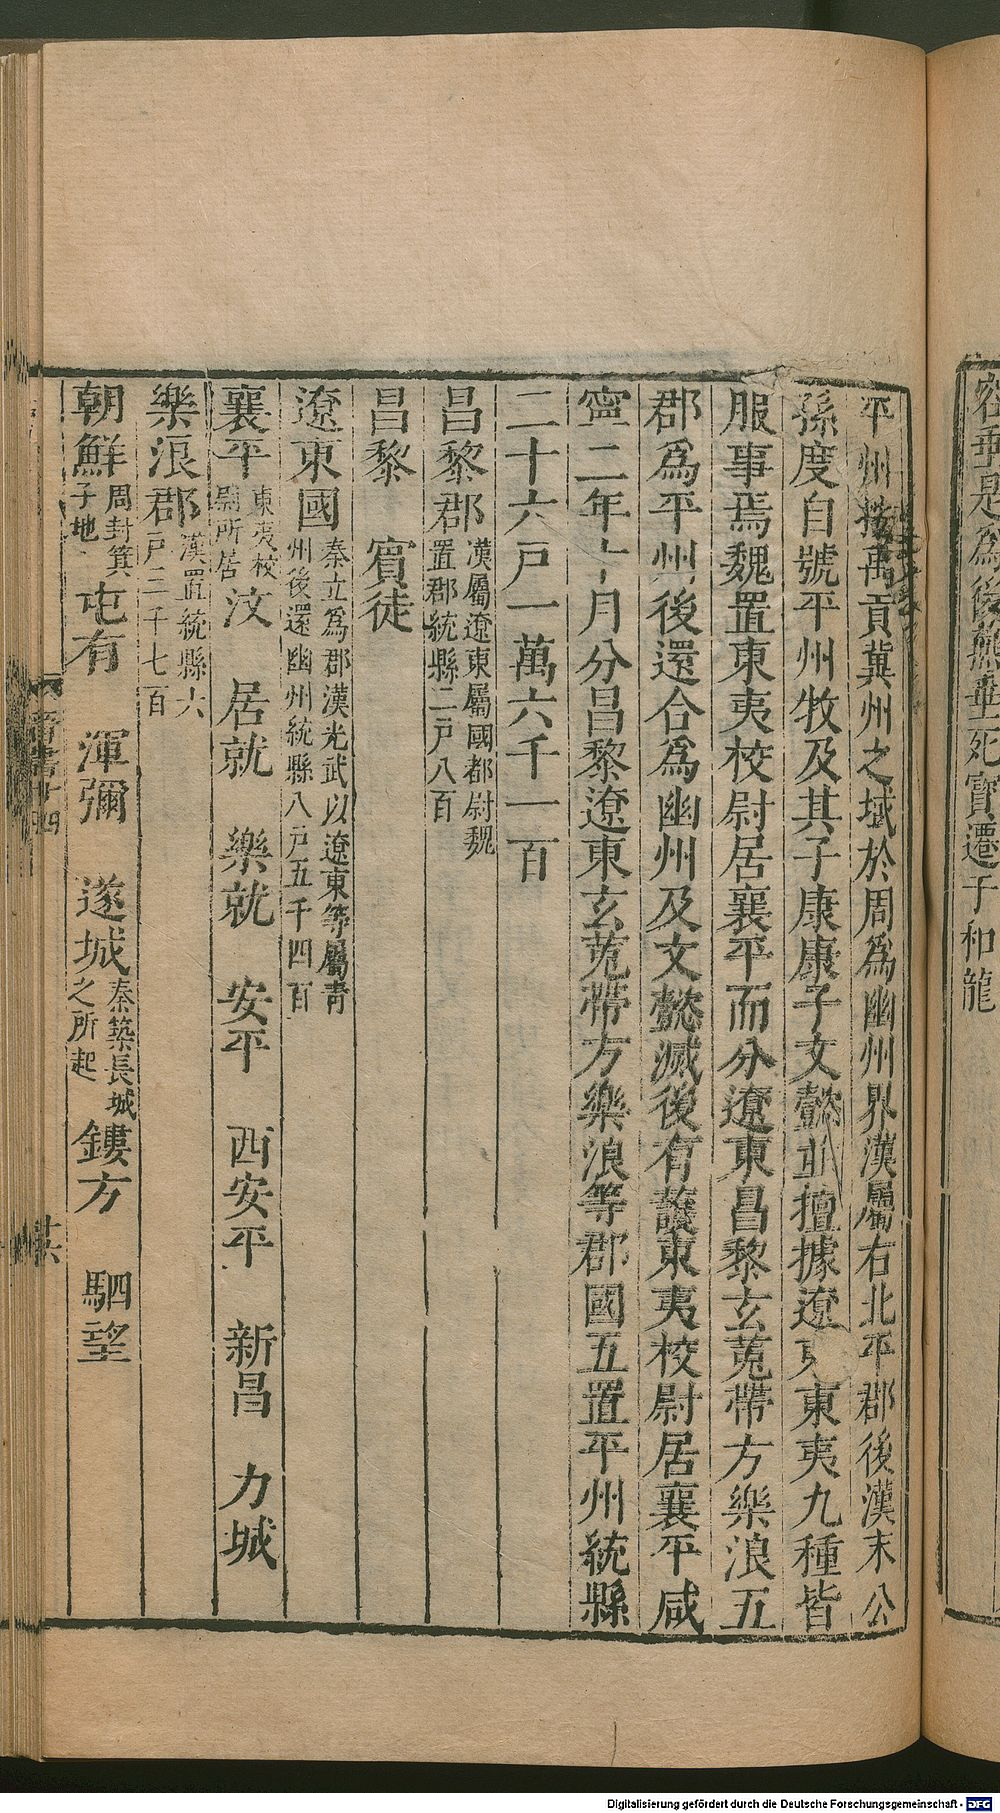 容垂是爲後燕垂死寶遷于和龍
平州按禹貢冀州之域於周爲幽州界漢屬右北平郡後漢末公
孫度自號平州牧及其子康康子文懿並擅據遼東東夷九種皆
服事焉魏置東夷校尉居襄平而分遼東昌黎玄菟帶方樂浪五
郡爲平州後還合爲幽州及文懿滅後有護東夷校尉居襄平咸
寧二年十月分昌黎遼東玄菟帶方樂浪等郡國五置平州統縣
二十六戸一萬六千一百
昌黎郡漢屬遼東屬國都尉魏置郡統縣二戸八百
昌黎 賓徒
遼東國秦立爲郡漢光武以遼東等屬靑州後還幽州統縣八戸五千四百
襄平東夷校尉所居 汶 居就 樂就 安平 西安平 新昌 力城
樂浪郡漢置統縣六戸三千七百
朝鮮周封箕子地 屯有 渾彌 遂城秦築長城之所起 鏤方 駟望
晉書十四
廿六
Digitalisierung gefördert durch die Deutsche Forschungsgemeinschaft - DFG